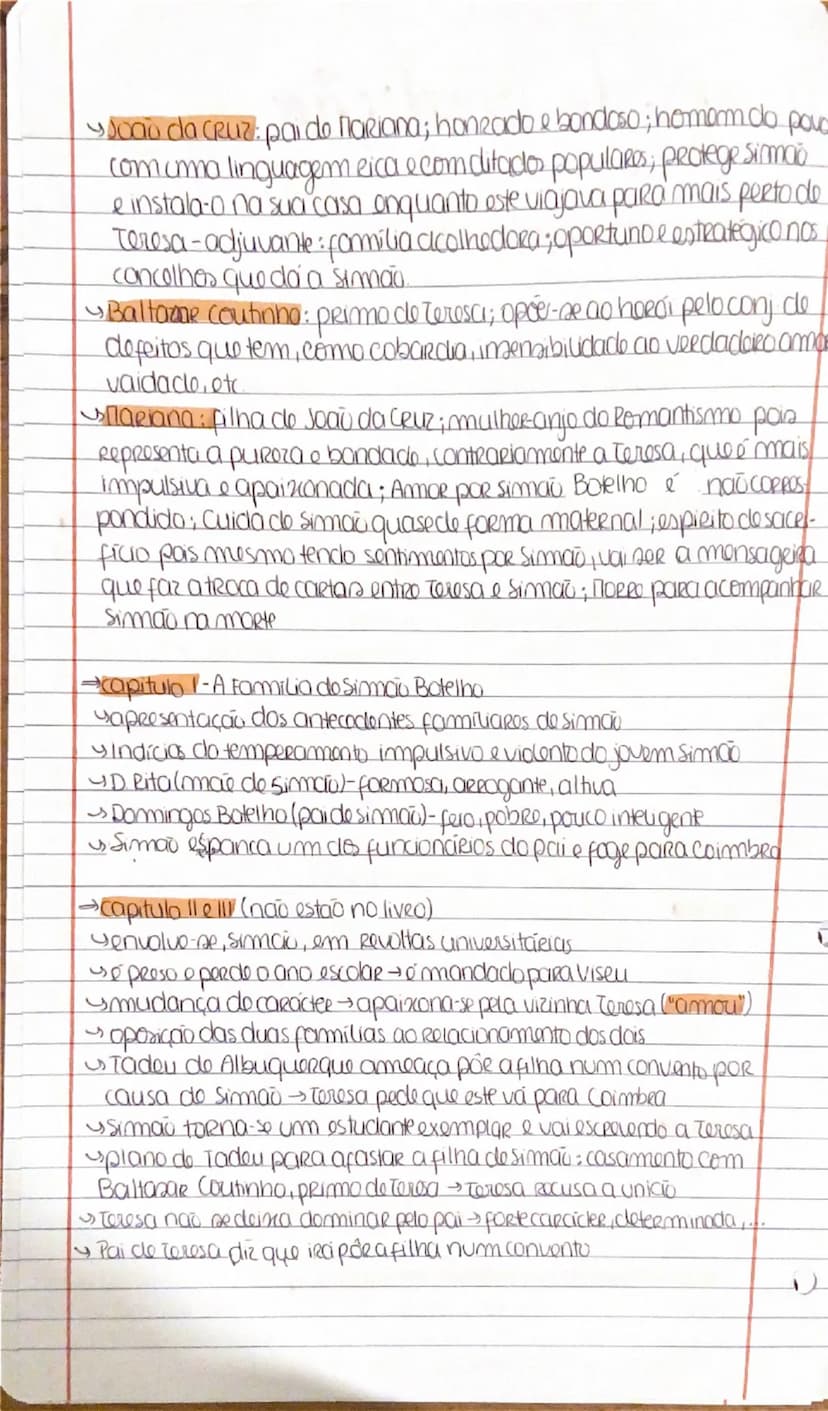 ↳ João da Cruz: pai de Mariana; honrado e bondoso; homem do povo
com uma linguagem rica e com ditados populares; protege simão
e instala-o na sua casa enquanto este viajava para mais perto de
Teresa - adjuvante: família acolhedora; oportuno e estratégico nos
concelhos que dá a simão.
↳ Baltazar Coutinho: primo de Teresa; opõe-se ao herói pelo conj. de
defeitos que tem, como cobardia, insensibilidade ao verdadeiro amor
vaidade, etc
↳ Mariana: filha de João da Cruz; mulher-anjo do Romantismo pois
representa a pureza e bondade, contrariamente a Teresa, que é mais
impulsiva e apaixonada; Amor por simão Botelho é não corres-
pondido; Cuida de Simão quase de forma maternal; espírito de sacri-
fício pois mesmo tendo sentimentos por Simão, vai ser a mensageira
que faz a troca de cartas entre Teresa e Simão; Morre para acompanhar
Simão na morte
⇒ capítulo I - A Família de Simão Botelho
↳ apresentação dos antecedentes familiares de simão
↳ Indícios do temperamento impulsivo e violento do jovem Simão
↳ D. Rita (mãe de Simão) - formosa, arrogante, altiva
↳ Domingos Botelho (pai de simão) - feio, pobre, pouco inteligente
↳ Simão espanca um dos funcionários do pai e foge para Coimbra
⇒ capítulo II e III (não estão no livro)
↳ envolve-se, simão, em revoltas universitárias
↳ é preso e perde o ano escolar → é mandado para Viseu
↳ mudança de carácter → apaixona-se pela vizinha Teresa ("amou")
↳ oposição das duas famílias ao relacionamento dos dois
↳ Tadeu de Albuquerque ameaça pôr a filha num convento por
causa de Simão → Teresa pede que este vá para Coimbra
↳ Simão torna-se um estudante exemplar e vai escrevendo a Teresa
↳ plano de Tadeu para afastar a filha de simão: casamento com
Baltazar Coutinho, primo de Teresa → Teresa recusa a união
↳ Teresa não se deixa dominar pelo pai → forte carácter, determinada,...
↳ Pai de Teresa diz que irá pôr a filha num convento